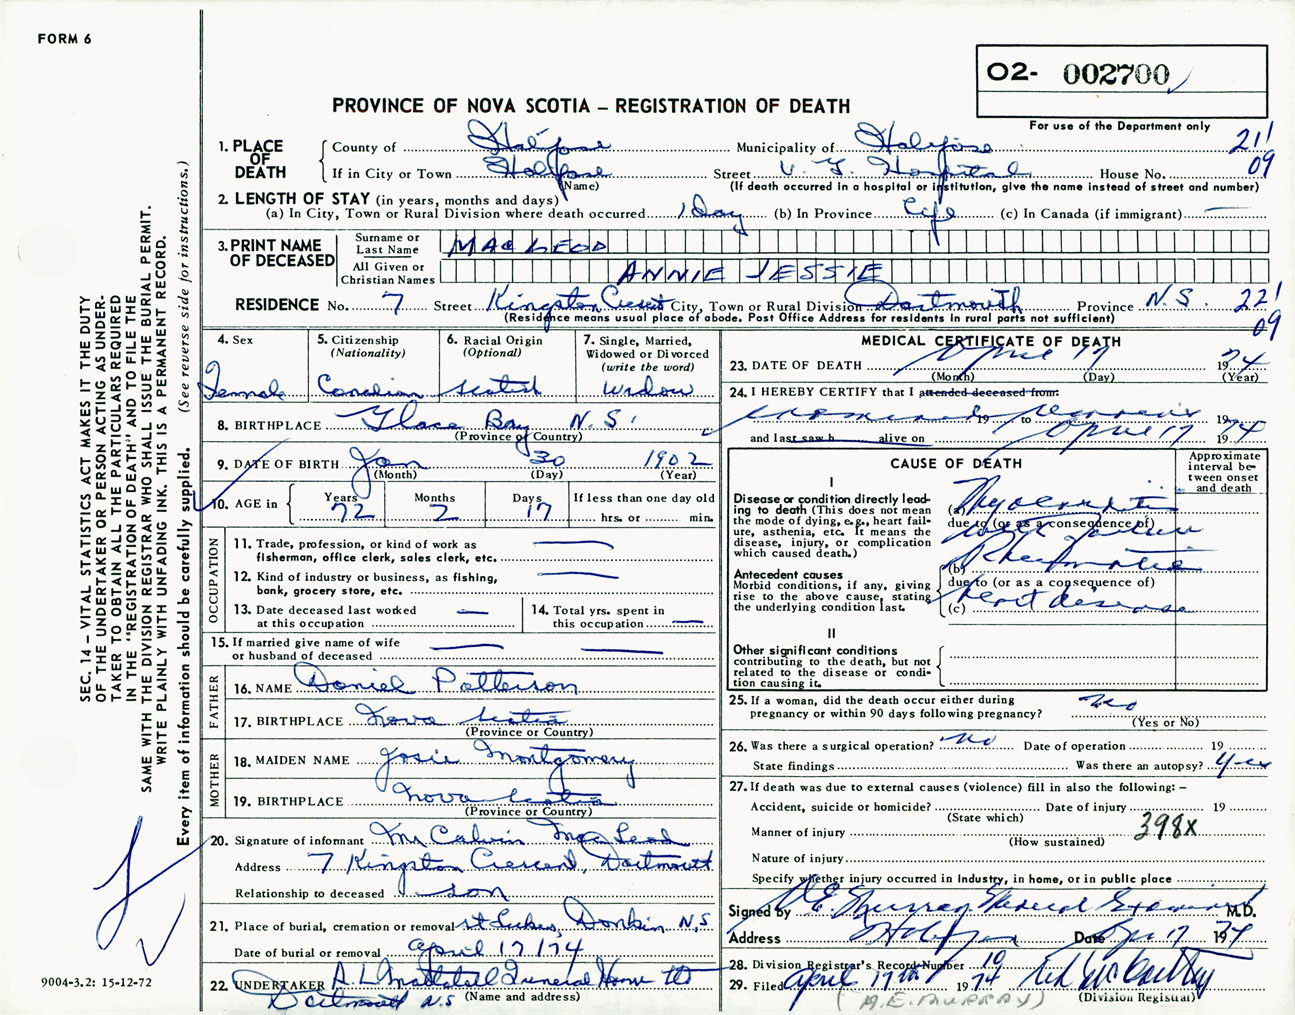 FORM 6
O2- 002700
PROVINCE OF NOVA SCOTIA – REGISTRATION OF DEATH
For use of the Department only
1. PLACE OF DEATH
County of Halifax Municipality of Halifax 21 09
If in City or Town Halifax Street V. G. Hospital House No.
(Name) (If death occurred in a hospital or institution, give the name instead of street and number)
2. LENGTH OF STAY (in years, months and days)
(a) In City, Town or Rural Division where death occurred 1 Day (b) In Province Life (c) In Canada (if immigrant) —
3. PRINT NAME OF DECEASED
Surname or Last Name MACLEOD
All Given or Christian Names ANNIE JESSIE
RESIDENCE No. 7 Street Kingston Crescent City, Town or Rural Division Dartmouth Province N.S. 22 09
(Residence means usual place of abode. Post Office Address for residents in rural parts not sufficient)
4. Sex
Female
5. Citizenship
(Nationality)
Canadian
6. Racial Origin
(Optional)
Scotish
7. Single, Married,
Widowed or Divorced
(write the word)
Widow
8. BIRTHPLACE Glace Bay N.S.
(Province or Country)
9. DATE OF BIRTH Jan 30 1902
(Month) (Day) (Year)
10. AGE in Years 72 Months 2 Days 17 If less than one day old
hrs. or min.
OCCUPATION
11. Trade, profession, or kind of work as
fisherman, office clerk, sales clerk, etc. —
12. Kind of industry or business, as fishing,
bank, grocery store, etc. —
13. Date deceased last worked
at this occupation —
14. Total yrs. spent in
this occupation —
15. If married give name of wife
or husband of deceased — —
FATHER
16. NAME Daniel Patterson
17. BIRTHPLACE Nova Scotia
(Province or Country)
MOTHER
18. MAIDEN NAME Josie Montgomery
19. BIRTHPLACE Nova Scotia
(Province or Country)
20. Signature of informant Mr Calvin MacLeod
Address 7 Kingston Crescent, Dartmouth
Relationship to deceased son
21. Place of burial, cremation or removal St Lukes, Donkin N.S
Date of burial or removal April 17/74
22. UNDERTAKER A L Mattatall Funeral Home Ltd
Dartmouth N.S (Name and address)
MEDICAL CERTIFICATE OF DEATH
23. DATE OF DEATH April 17 1974
(Month) (Day) (Year)
24. I HEREBY CERTIFY that I attended deceased from:
examined 19 to remains 19
and last saw h alive on April 17 1974
CAUSE OF DEATH
Approximate
interval be-
tween onset
and death
I
Disease or condition directly lead-
ing to death (This does not mean
the mode of dying, e.g., heart fail-
ure, asthenia, etc. It means the
disease, injury, or complication
which caused death.)
(a) Myocarditis
due to (or as a consequence of)
with failure
(b) Rheumatic
Antecedent causes
Morbid conditions, if any, giving
rise to the above cause, stating
the underlying condition last.
due to (or as a consequence of)
(c) heart disease
II
Other significant conditions
contributing to the death, but not
related to the disease or condi-
tion causing it.
25. If a woman, did the death occur either during
pregnancy or within 90 days following pregnancy? No
(Yes or No)
26. Was there a surgical operation? No Date of operation 19
State findings Was there an autopsy? Yes
27. If death was due to external causes (violence) fill in also the following: –
Accident, suicide or homicide? Date of injury 19
(State which)
Manner of injury 398X
(How sustained)
Nature of injury
Specify whether injury occurred in Industry, in home, or in public place
Signed by A E Murray Medical Examiner M.D.
Address Halifax Date Apr 17 1974
28. Division Registrar's Record Number 10
29. Filed April 17th 1974
(A.E. MURRAY) (Division Registrar)
SEC. 14 – VITAL STATISTICS ACT MAKES IT THE DUTY
OF THE UNDERTAKER OR PERSON ACTING AS UNDER-
TAKER TO OBTAIN ALL THE PARTICULARS REQUIRED
IN THE "REGISTRATION OF DEATH" AND TO FILE THE
SAME WITH THE DIVISION REGISTRAR WHO SHALL ISSUE THE BURIAL PERMIT.
WRITE PLAINLY WITH UNFADING INK. THIS IS A PERMANENT RECORD.
Every item of information should be carefully supplied. (See reverse side for instructions.)
9004-3.2: 15-12-72